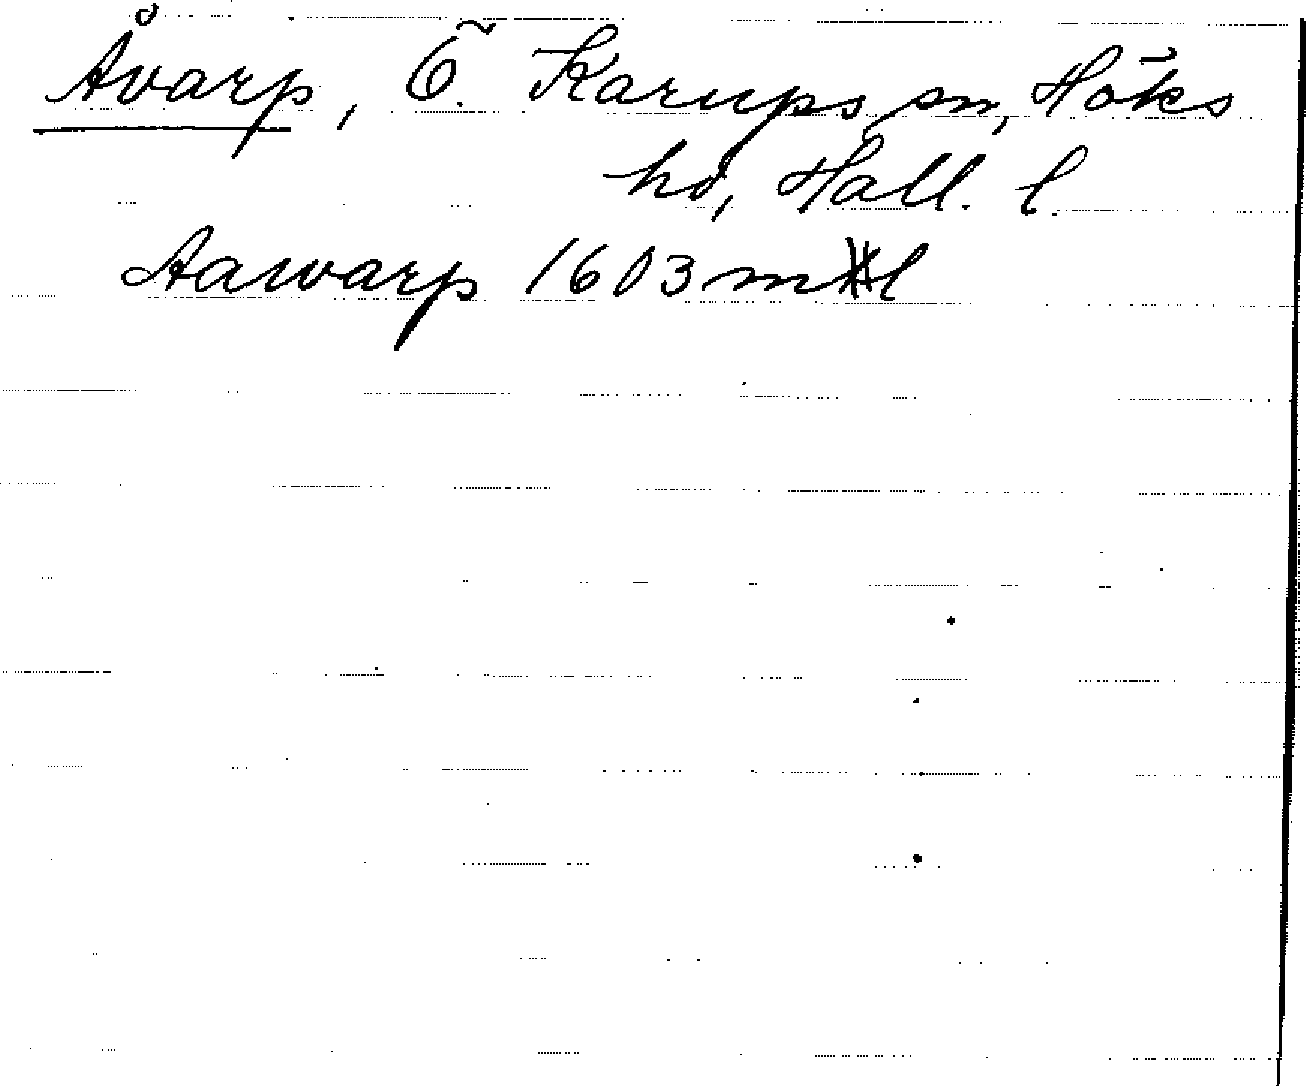 Åvarp, Ö. Karups sn, Höks
hd, Hall. l.
Aawarp 1603